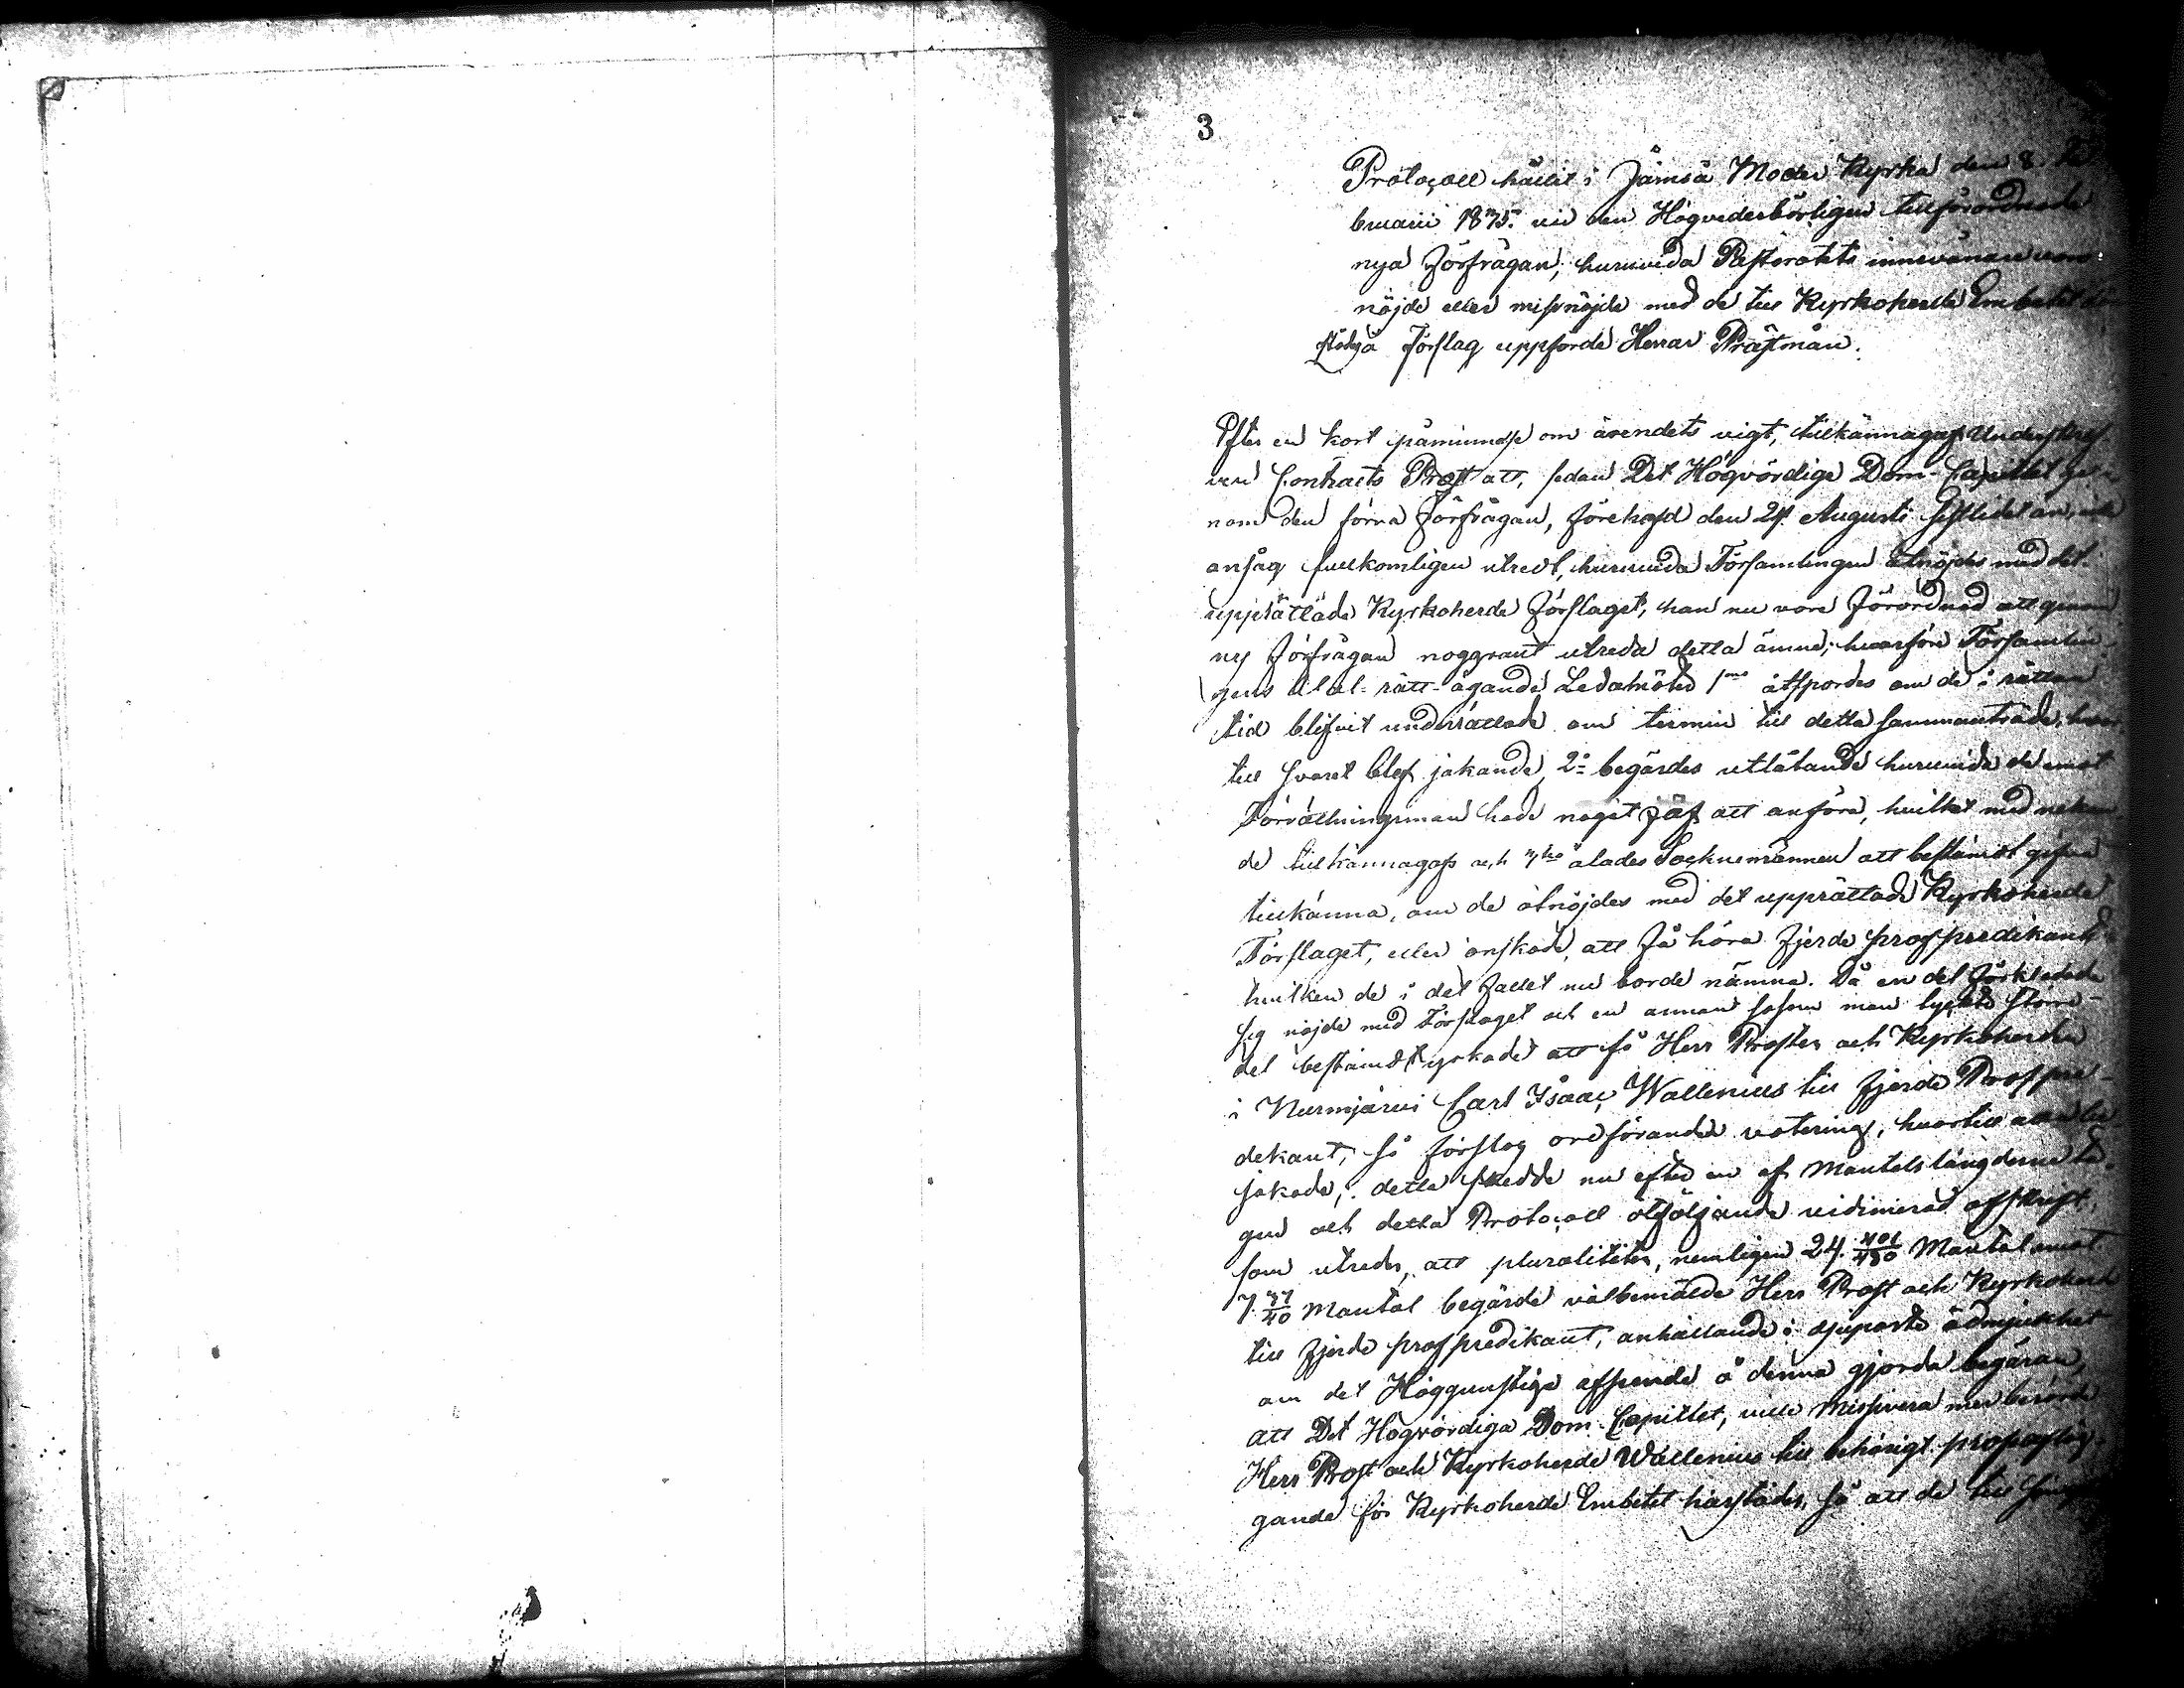 3
Protocoll hållit i Jämsä Moder Kyrka den 8. Fe
bruarii 1835. vid den Högvederbörligen tillförordnade
nya Förfrågan, huruvida Pastoratets innevånare voro
nöjde eller missnöjde med de till Kyrkoherde Embetet
städs å Förslag uppförde Herrar Prästmän.
Efter en kort påminnelse om ärendets vigt, tillkännagaf Underskref
ven Contracts Prost att, sedan Det Högvördige Dom-Capitlet ge-
nom den förra Förfrågan, förehafd den 24 Augusti sistlidet år, icke
ansåg fullkomligen utredt, huruvida Församlingen åtnöjdes med det
upprättade Kyrkoherde Förslaget, han nu vore Förordnad att genom
ny Förfrågan noggrant utreda detta ämne; hvarföre Församlin-
gens Val-rätt-ägande Ledamöter 1mo åtspordes om de i rättan
tid blifvit underrättade om termin till detta sammanträde, hvar
till svaret blef jakande, 2o begärdes utlåtande huruvida de emot
Förrättningsman hade något jäf att anföra, hvilket med nekan
de tillkännagafs och 3tio ålades Socknemännen att bestämdt gifva
tillkänna, om de åtnöjdes med det upprättade Kyrkoherde
Förslaget, eller önskade, att få höra fjerde profpredikant
hvilken de i det fallet nu borde nämna. Då en del förklarade
sig nöjde med Förslaget och en annan såsom man tyckte större
del bestämdt yrkade att få Herr Prosten och Kyrkoherden
i Nurmijärvi Carl Isaac Wallenius till fjerde Profpre-
dekant, så förslog ordförande votering, hvartill alla
jakade; detta skedde nu efter en af Mantalslängderne ta
gen och detta Protocoll åtföljande vidimerad afskrift,
som utreder, att pluraliteten, nemligen 24. 401/480 Mantal emot
7 37/40 Mantal begärde välbemälde Herr Prost och Kyrkoherde
till fjerde profpredikant, anhållande i djupaste ödmjukhet
om det Höggunstiga afseende å denna gjorda begäran,
att Det Högvördiga Dom-Capitlet, ville missivera merberörde
Herr Prost och Kyrkoherde Wallenius till behörigt profafläg
gande för Kyrkoherde Embetet härstädes, så att de till